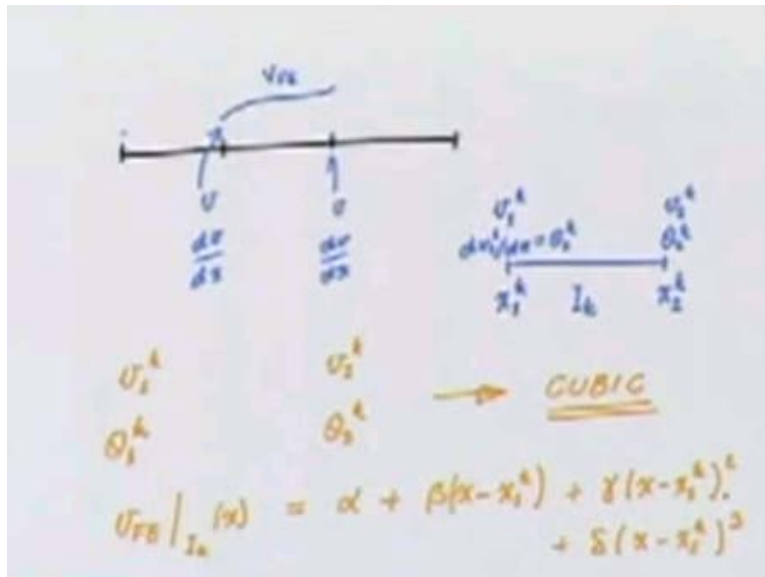 v_FE
v v
dv/dx dv/dx
v₁ᵏ v₂ᵏ
dv₁ᵏ/dx = θ₁ᵏ θ₂ᵏ
x₁ᵏ I_k x₂ᵏ
v₁ᵏ v₂ᵏ
θ₁ᵏ θ₂ᵏ → CUBIC
v_FE|_I_k (x) = α + β(x-x₁ᵏ) + γ(x-x₁ᵏ)²
+ δ(x-x₁ᵏ)³